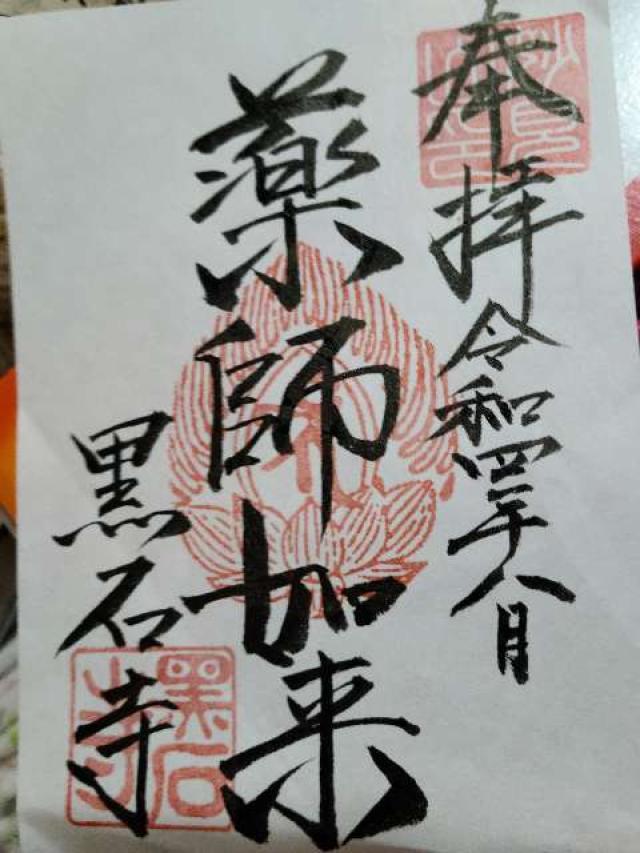 奉拝 令和四年八月
薬師如来
黒石寺
黒石寺